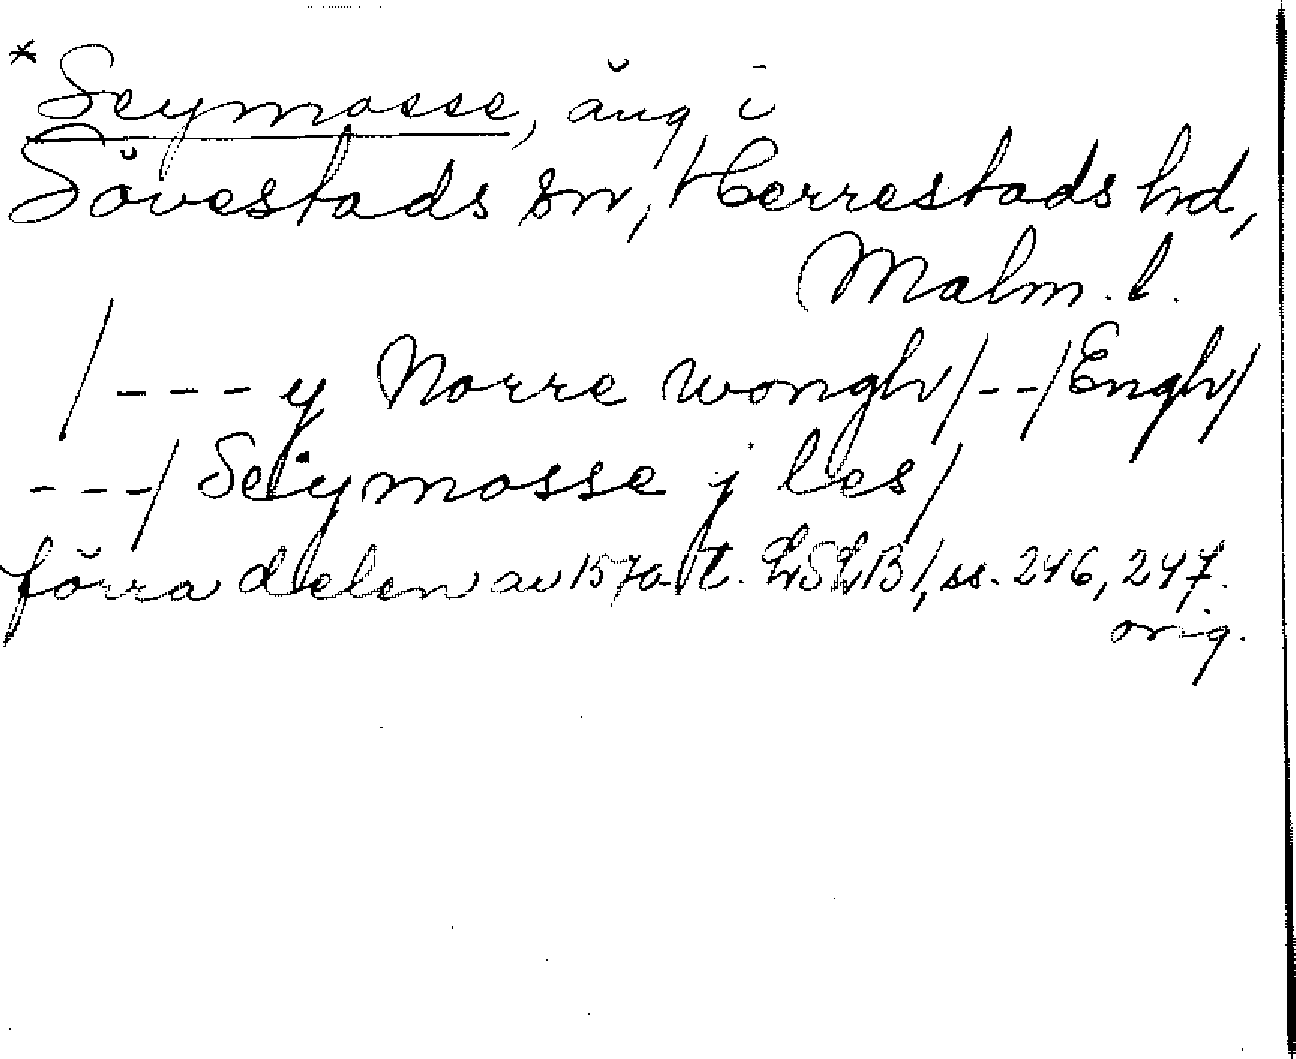 * Seymosse, äng i
Sövestads sn, Herrestads hd,
Malm. l.
/---y Norre wongh/--/Engh/
---/ Seiymosse j les/
förra delen av 1570-t. LSLB 1, ss. 246, 247.
orig.